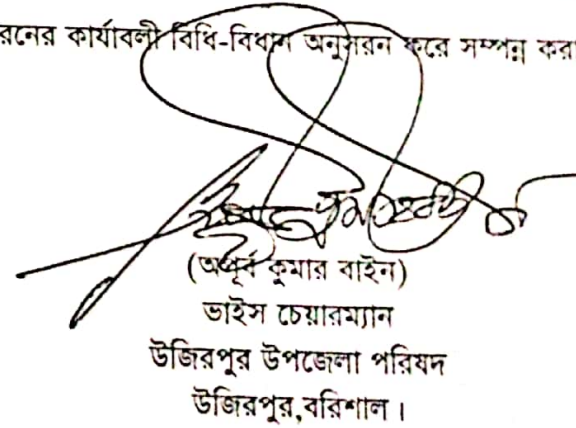 রনের কার্যাবলী বিধি-বিধান অনুসরন করে সম্পন্ন করা
(অপূর্ব কুমার বাইন)
ভাইস চেয়ারম্যান
উজিরপুর উপজেলা পরিষদ
উজিরপুর,বরিশাল।